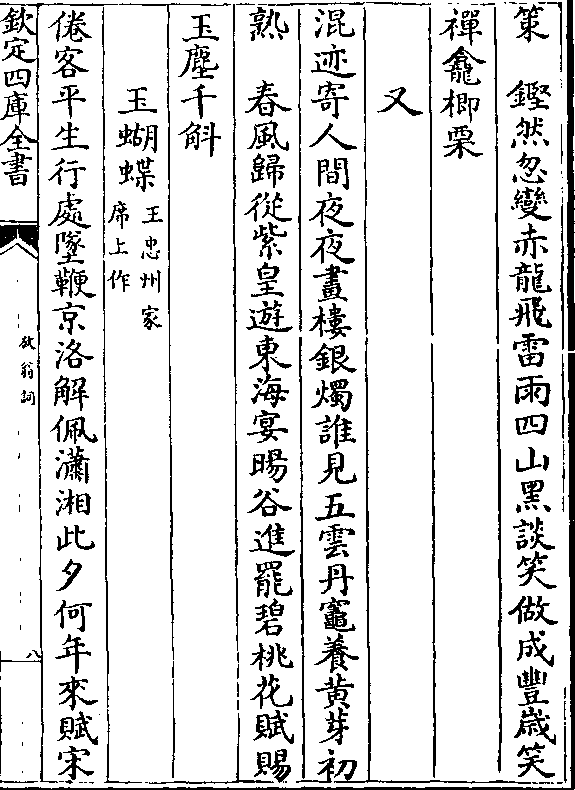 策　鏗然忽變赤龍飛雷雨四山黑談笑做成豐歲笑
禪龕楖栗
又
混迹寄人間夜夜畫樓銀燭誰見五雲丹竈養黃芽初
熟　春風歸從紫皇遊東海宴暘谷進罷碧桃花賦賜
玉塵千斛
玉蝴蝶　王忠州家
席上作
倦客平生行處墜鞭京洛解佩瀟湘此夕何年來賦宋
欽定四庫全書
放翁詞
八